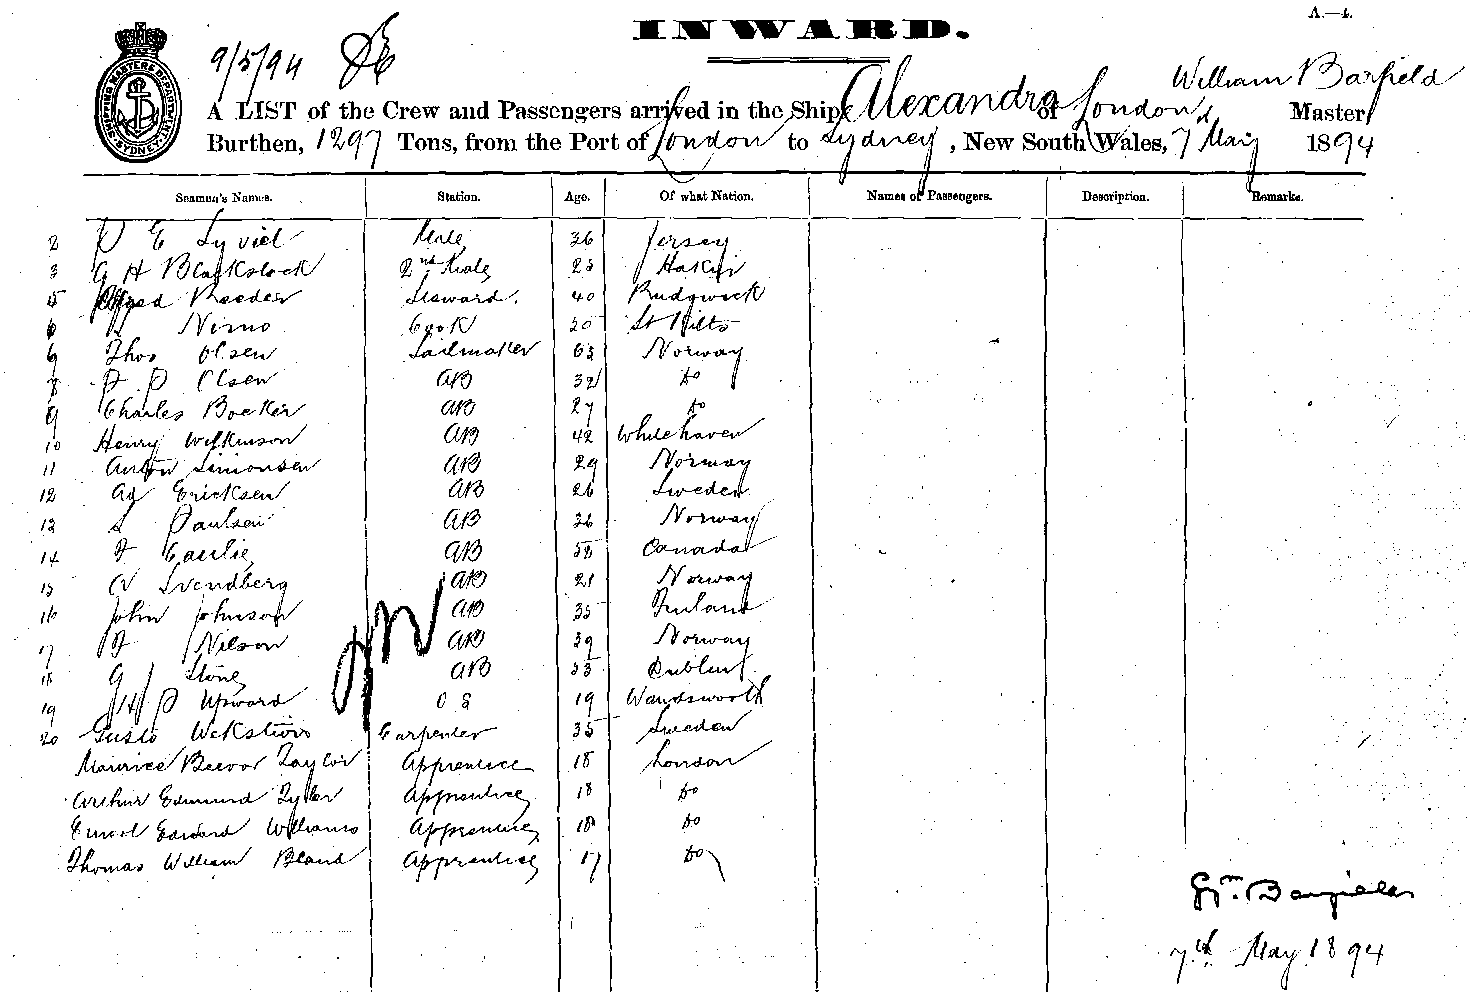 A.—4.
INWARD.
SHIPPING MASTERS DEPARTMENT SYDNEY
9/5/94
William Barfield
A LIST of the Crew and Passengers arrived in the Ship Alexandra of London, Master
Burthen, 1297 Tons, from the Port of London to Sydney, New South Wales, 7 May 1894
Seaman's Names. Station. Age. Of what Nation. Names of Passengers. Description. Remarks.
2 P E Syvret Mate 36 Jersey
3 G H Blackstock 2nd Mate 25
5 Alfred Reeder Steward. 40 Rudgwick
6 Nimo Cook 50
7 Thos Olsen Sailmaker 63 Norway
8 P Olsen AB 32 do
9 Charles Boeker AB 27 do
10 Henry Wilkinson AB 42 Whitehaven
11 Anton Simonsen AB 29 Norway
12 Ad Ericksen AB 26 Sweden
13 S Paulsen AB 36 Norway
14 F AB 58 Canada
15 A Svendberg AB 21 Norway
16 John Johnson AB 35 Finland
17 F Nilson AB 39 Norway
18 G Stone AB 53 Dublin
19 H P Upward OS 19 Wandsworth
20 Carpenter 35 Sweden
Maurice Beevor Taylor Apprentice 18 London
Arthur Edmund Tyler Apprentice 18 do
Ernest Edward Williams Apprentice 18 do
Thomas William Bland Apprentice 17 do
Wm. Barfield
7th May 1894